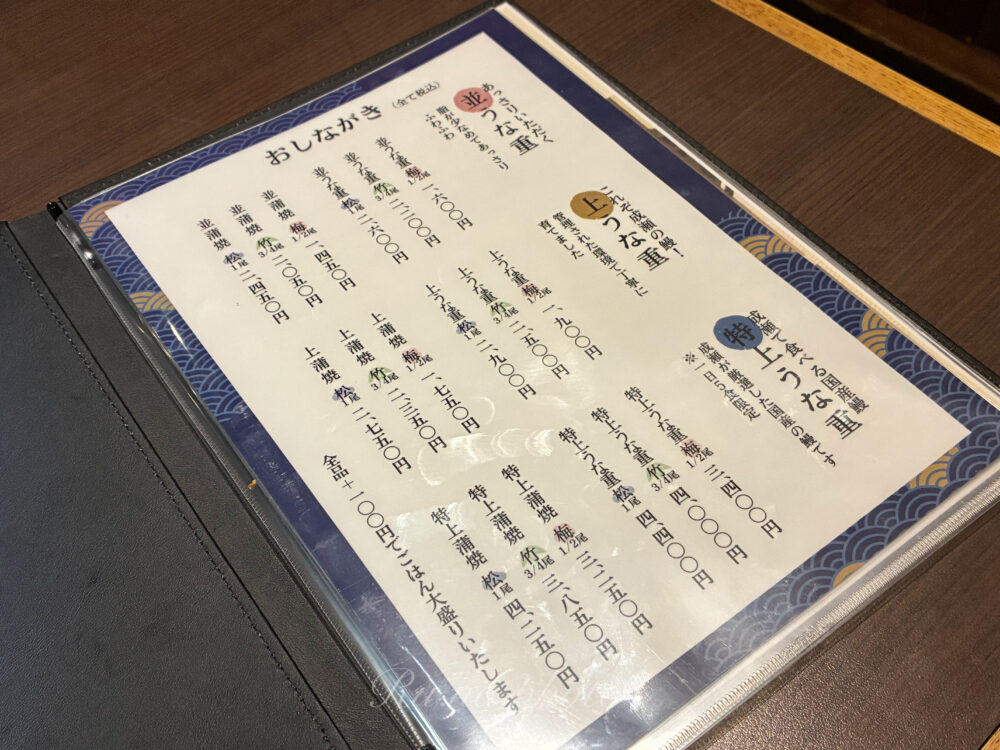 おしながき（全て税込）
あっさりいただく
並うな重
脂が少なめであっさり
ふわふわ
並うな重 梅 1/2尾 一、六〇〇円
並うな重 竹 3/4尾 二、二〇〇円
並うな重 松 1尾 二、六〇〇円
並蒲焼 梅 1/2尾 一、四五〇円
並蒲焼 竹 3/4尾 二、〇五〇円
並蒲焼 松 1尾 二、四五〇円
これぞ成瀬の鰻！
上うな重
管理された環境で丁寧に
育てました
上うな重 梅 1/2尾 一、九〇〇円
上うな重 竹 3/4尾 二、五〇〇円
上うな重 松 1尾 二、九〇〇円
上蒲焼 梅 1/2尾 一、七五〇円
上蒲焼 竹 3/4尾 二、三五〇円
上蒲焼 松 1尾 二、七五〇円
成瀬で食べる国産鰻
特上うな重
成瀬が厳選した国産の鰻です
※一日5食限定
特上うな重 梅 1/2尾 三、四〇〇円
特上うな重 竹 3/4尾 四、〇〇〇円
特上うな重 松 1尾 四、四〇〇円
特上蒲焼 梅 1/2尾 三、二五〇円
特上蒲焼 竹 3/4尾 三、八五〇円
特上蒲焼 松 1尾 四、二五〇円
全品+一〇〇円でごはん大盛りいたします